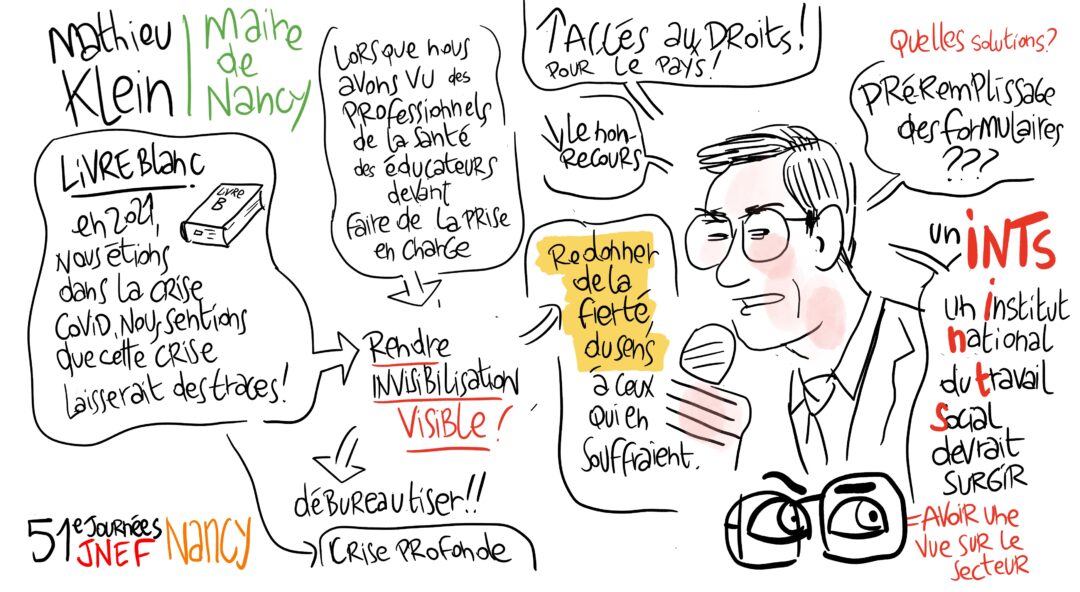 Mathieu
Klein
Maire
de
Nancy
LIVRE Blanc
LIVRE
B
en 2021,
Nous étions
dans la CRISE
COVID. Nous sentions
que cette CRISE
Laisserait des traces!
LORSQUE nous
avons VU des
PROfessionnels
de la santé
des éducateurs
devant
faire de la PRISE
en charge
Rendre
INVISIBILISATION
VISIBLE!
débureautiser!!
CRISE PROFONDE
51e JOURNÉES
JNEF
Nancy
↑ Accés aux DROITS!
POUR LE PAYS!
↘ Le non-
RECOURS
Redonner
de la
fierté,
du sens
à ceux
qui en
souffraient.
Quelles solutions?
PRéREMPLISSAGE
des formulaires
???
un iNTS
un institut
national
du travail
Social
devrait
SURGIR
= AVOIR UNE
VUE SUR LE
SECTEUR